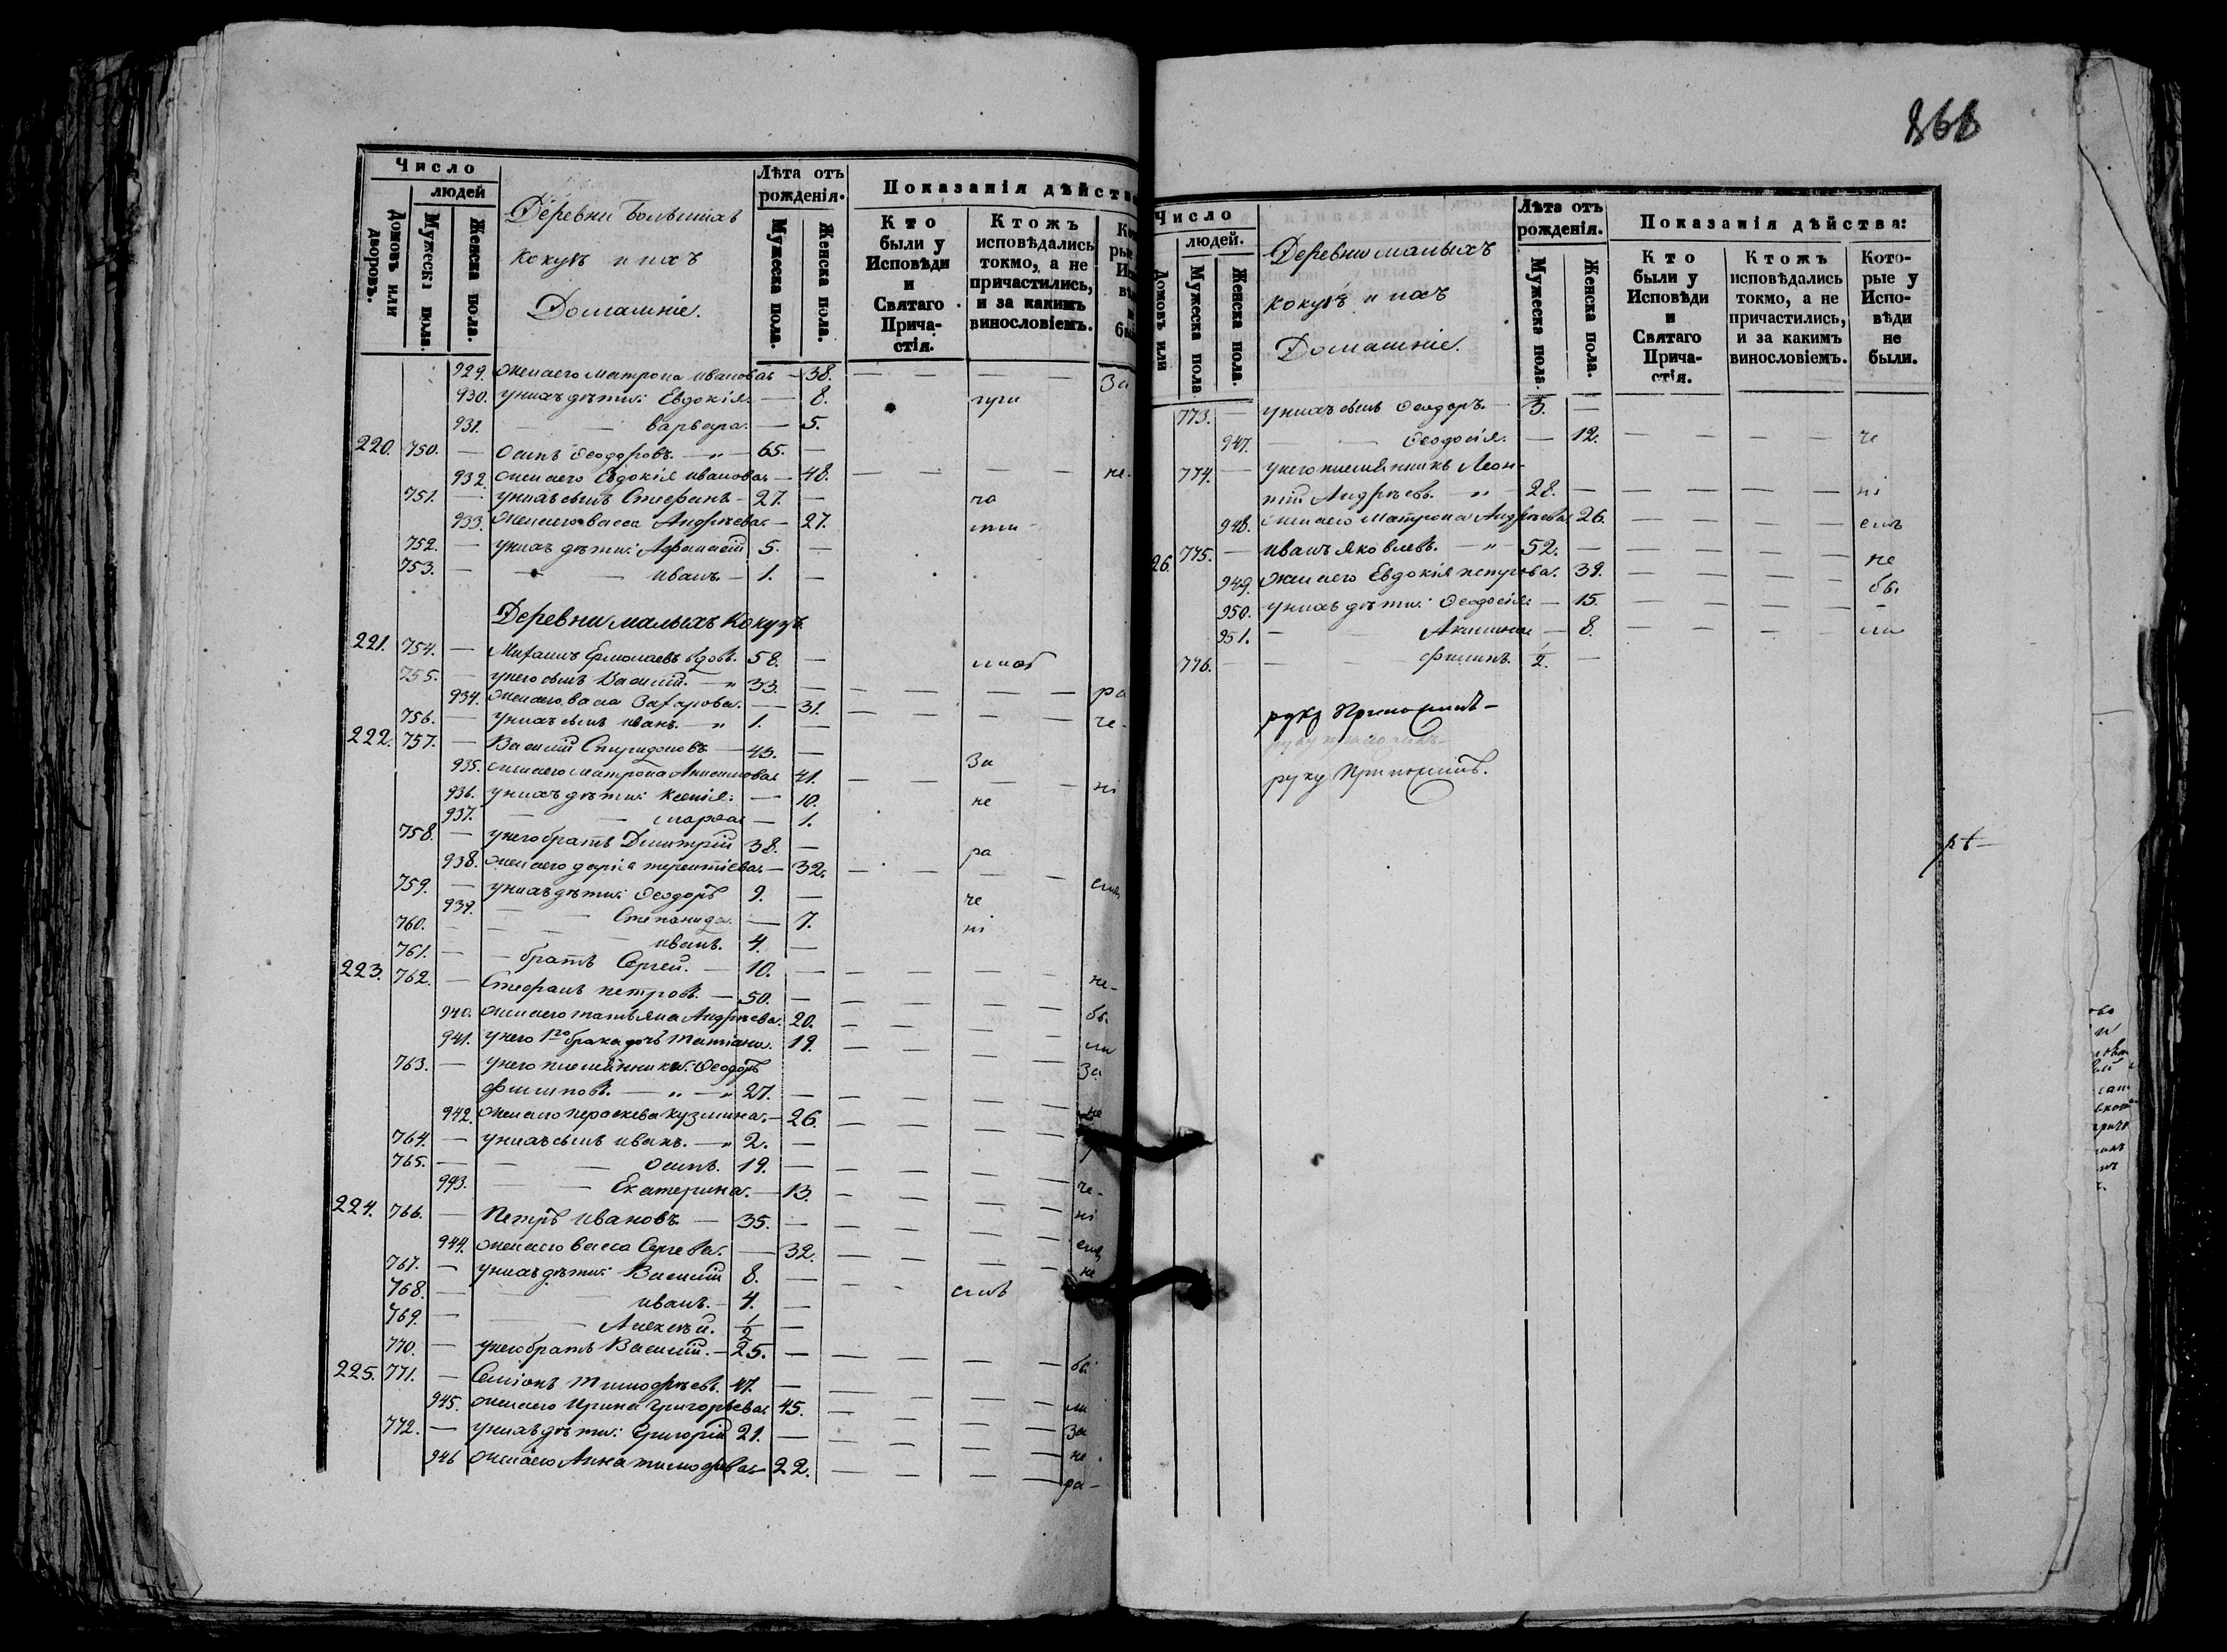 Число
людей
Домовъ или дворовъ.
Мужеска пола.
Женска пола.
Деревни Большихъ
Кокузъ и ихъ
Домашніе.
Лѣта отъ
рожденія.
Мужеска пола.
Женска пола.
Показанія дѣйств
Кто
были у
Исповѣди
и
Святаго
Прича-
стія.
Ктожъ
исповѣдались
токмо, а не
причастились,
и за какимъ
винословіемъ.
929. жена его Матрона Иванова — 38. — — — — За
930. у нихъ дѣти: Евдокія — 8.
931. — — Варвара. — 5.
220. 750. — Осипъ Ѳеодоровъ. — „ — 65. —
932. жена его Евдокія Иванова — 48. — — — — не-
751. — у нихъ сынъ Стефанъ — 27. —
933. жена его Васса Андрѣева — 27.
752. — у нихъ дѣти: Афанасій 5. —
753. — — — Иванъ. — 1. —
Деревни Малыхъ Кокузъ
221. 754. — Михаилъ Ермолаевъ вдовъ. 58. —
755. — у него сынъ Василій. — „ 33. — — — — — ра
934. жена его Васса Захарова. — 31. — — — — че-
756. — у нихъ сынъ Иванъ. — „ 1. —
222. 757. — Василій Спиридоновъ — 43. — За
935. жена его Матрона Анисимова 41. — — — — ні
936. у нихъ дѣти: Ксенія: — 10. не
937. — — Марѳа — 1.
758. — у него братъ Димитрій 38. — ра
938. жена его Дарія Терентіева — 32. — — — — емъ
759. — у нихъ дѣти: Ѳеодоръ 9. — че
939. — — Степанида. — 7. ні
760. — — — Иванъ. 4. —
761. — — братъ Сергей. — 10. — — — — — не-
223. 762. — Стефанъ Петровъ. — 50. — — — — — бы
940. жена его Татьяна Андрѣева. 20. — — — — ли
941. у него 1го брака дочь Татіана. 19. — — — — За
763. — у него племянникъ: Ѳеодоръ
Филиповъ. — „ — „ 27. — — — — — не
942. жена его Параскева Кузмина. — 26. — — — —
764. — у нихъ сынъ Иванъ. — „ 2. —
765. — — — Осипъ. 19. — — — — — че-
943. — — Екатерина. — 13. — — — — ні
224. 766. — Петръ Ивановъ. — 35. — — — — — емъ
944. жена его Васса Сергева. — 32. — — — — не
767. — у нихъ дѣти: Василій 8. —
768. — — Иванъ. — 4. —
769. — — Алексѣй. 1/2 —
770. — у него братъ Василій. — 25. — — — — — бы
225. 771. — Симіонъ Тимофѣевъ. 47. — — — — — ли
945. жена его Ирина Григорьева 45. — — — — За
772. — у нихъ дѣти: Григорій 21. — — — — — не
946 жена его Анна Тимофева 22. — — — — ра-
Число
людей.
Домовъ или
Мужеска пола
Женска пола.
Деревни Малыхъ
Кокузъ и ихъ
Домашніе.
Лѣта отъ
рожденія.
Мужеска пола.
Женска пола.
Показанія дѣйства:
Кто
были у
Исповѣди
и
Святаго
Прича-
стія.
Ктожъ
исповѣдались
токмо, а не
причастились,
и за какимъ
винословіемъ.
Кото-
рые у
Испо-
вѣди
не
были.
773. — у нихъ сынъ Ѳеодоръ. — 3. —
947. — — Ѳеодосія. — 12. — — — — че
774. — у него племянникъ Леон-
тій Андрѣевъ. — „ — 28. — — — — — ні
948. жена его Матрона Андрѣева 26. — — — — емъ
26. 775. — Иванъ Яковлевъ. — „ — 52. — — — — — не
949. жена его Евдокія Петрова. 39. — — — — бы
950. у нихъ дѣти: Ѳеодосія — 15. — — — — -
951. — — Акилина — 8. — — — — ли
776. — — — Филипъ. 1/2. —
руку Приложилъ —
руку Приложилъ.